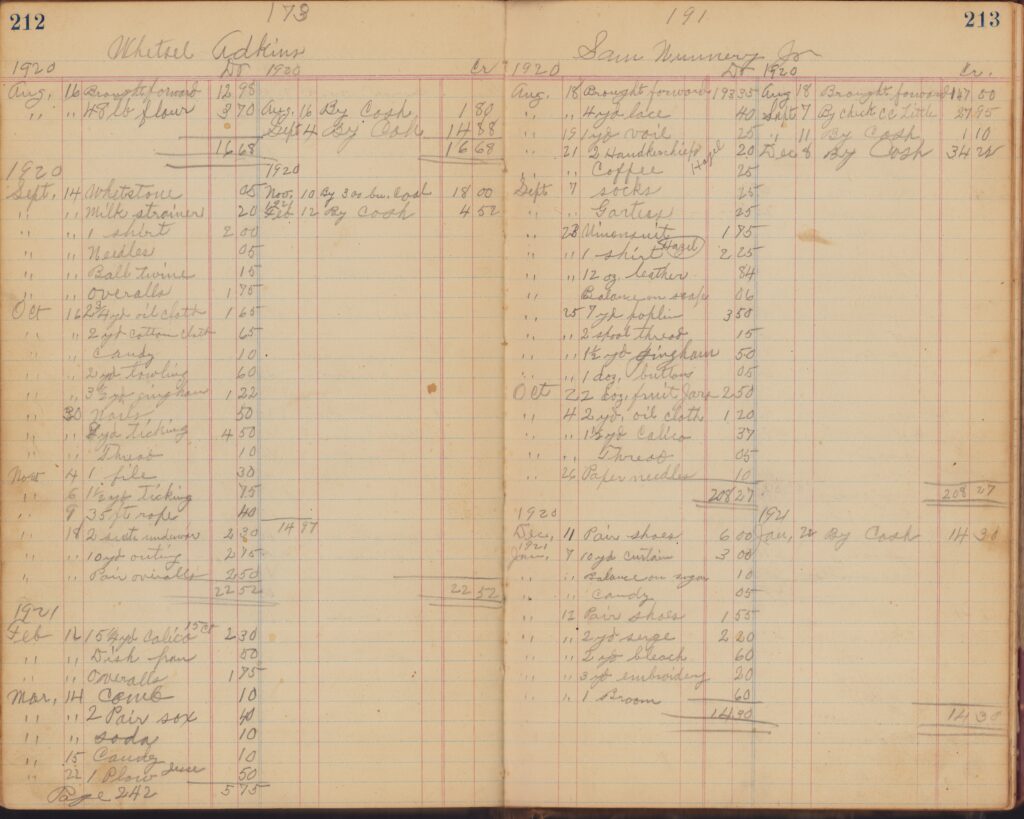 212
173
Whetsel Adkins
1920 Dr 1920 Cr
Aug. 16 Brought forward 12 98
" " 48 lb flour 3 70 Aug. 16 By Cash 1 80
Sept 4 By Cash 14 88
16 68 16 68
1920 1920
Sept. 14 Whetstone 05 Nov. 10 By 30 bu. Coal 18 00
" " Milk strainer 20 1921 Feb 12 By Cash 4 52
" " 1 shirt 2 00
" " Needles 05
" " Ball twine 15
" " Overalls 1 75
Oct 16 2 3/4 yd oil cloth 1 65
" " 2 yd cotton cloth 65
" " Candy 10
" " 2 yd towling 60
" " 3 1/2 yd gingham 1 22
" 30 Nails 50
" " yd ticking 4 50
" " Thread 10
Nov 4 1 file 30
" 6 1 1/2 yd ticking 75
" 9 35 ft rope 40 14 97
" 18 2 suits underwear 2 30
" " 10 yd outing 2 75
" " Pair overalls 2 50
22 52 22 52
1921
Feb 12 15 yd calico 15ct 2 30
" " Dish pan 50
" " Overalls 1 75
Mar. 14 Comb 10
" " 2 Pair sox 40
" " soda 10
" 15 Candy 10
" 22 1 Plow 50
Page 242 5 75
213
191
Sam Nunnery Jr
1920 Dr 1920 Cr.
Aug. 18 Brought forward 193 35 Aug 18 Brought forward 147 00
" " 4 yd lace 40 Sept 7 By Check CC Little 27 95
" 19 1 yd voil 25 " 11 By Cash 1 10
" 21 2 Handkerchiefs Hazel 20 Dec 8 By Cash 34 22
" " Coffee 25
Sept. 7 socks 25
" " Garters 25
" 23 Unionsuit 1 95
" " 1 shirt Hazel 2 25
" " 12 oz. leather 84
" Balance on soap 06
" 25 7 yd poplin 3 50
" " 2 spool thread 15
" " 1 1/2 yd gingham 50
" " 1 doz. buttons 05
Oct 2 2 doz. fruit jars 2 50
" 4 2 yd. oil cloth 1 20
" " 1 1/2 yd Calico 37
" " Thread 05
" 26 Paper needles 10
208 27 208 27
1920 1921
Dec, 11 Pair shoes 6 00 Jan, 22 By Cash 14 30
1921 Jan, 7 10 yd curtain 3 00
" " Balance on sugar 10
" " Candy 05
" 12 Pair shoes 1 55
" " 2 yd serge 2 20
" " 2 yd bleach 60
" " 3 yd embroidery 20
" " 1 Broom 60
14 30 14 30